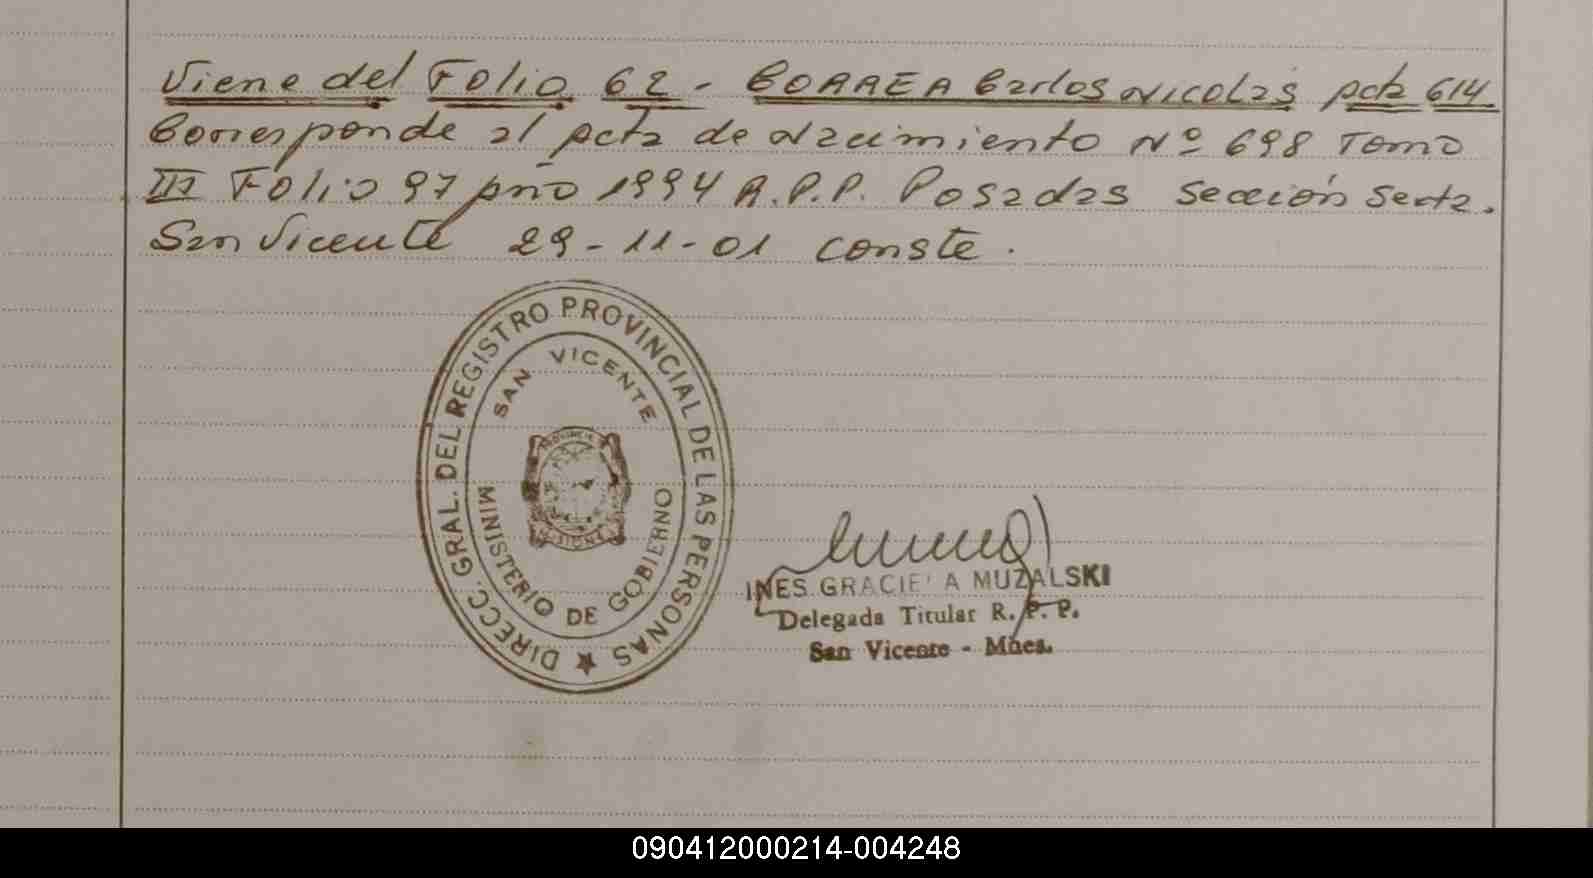 Viene del Folio 62 - CORREA Carlos Nicolás Acta 614
Corresponde al Acta de Nacimiento Nº 698 Tomo
III Folio 97 Año 1994 R.P.P. Posadas Sección Sexta.
San Vicente 29-11-01 Conste.
DIRECC. GRAL. DEL REGISTRO PROVINCIAL DE LAS PERSONAS
SAN VICENTE
PROVINCIA
MISIONES
MINISTERIO DE GOBIERNO
INES GRACIE A MUZALSKI
Delegada Titular R. P. P.
San Vicente - Mnes.
090412000214-004248